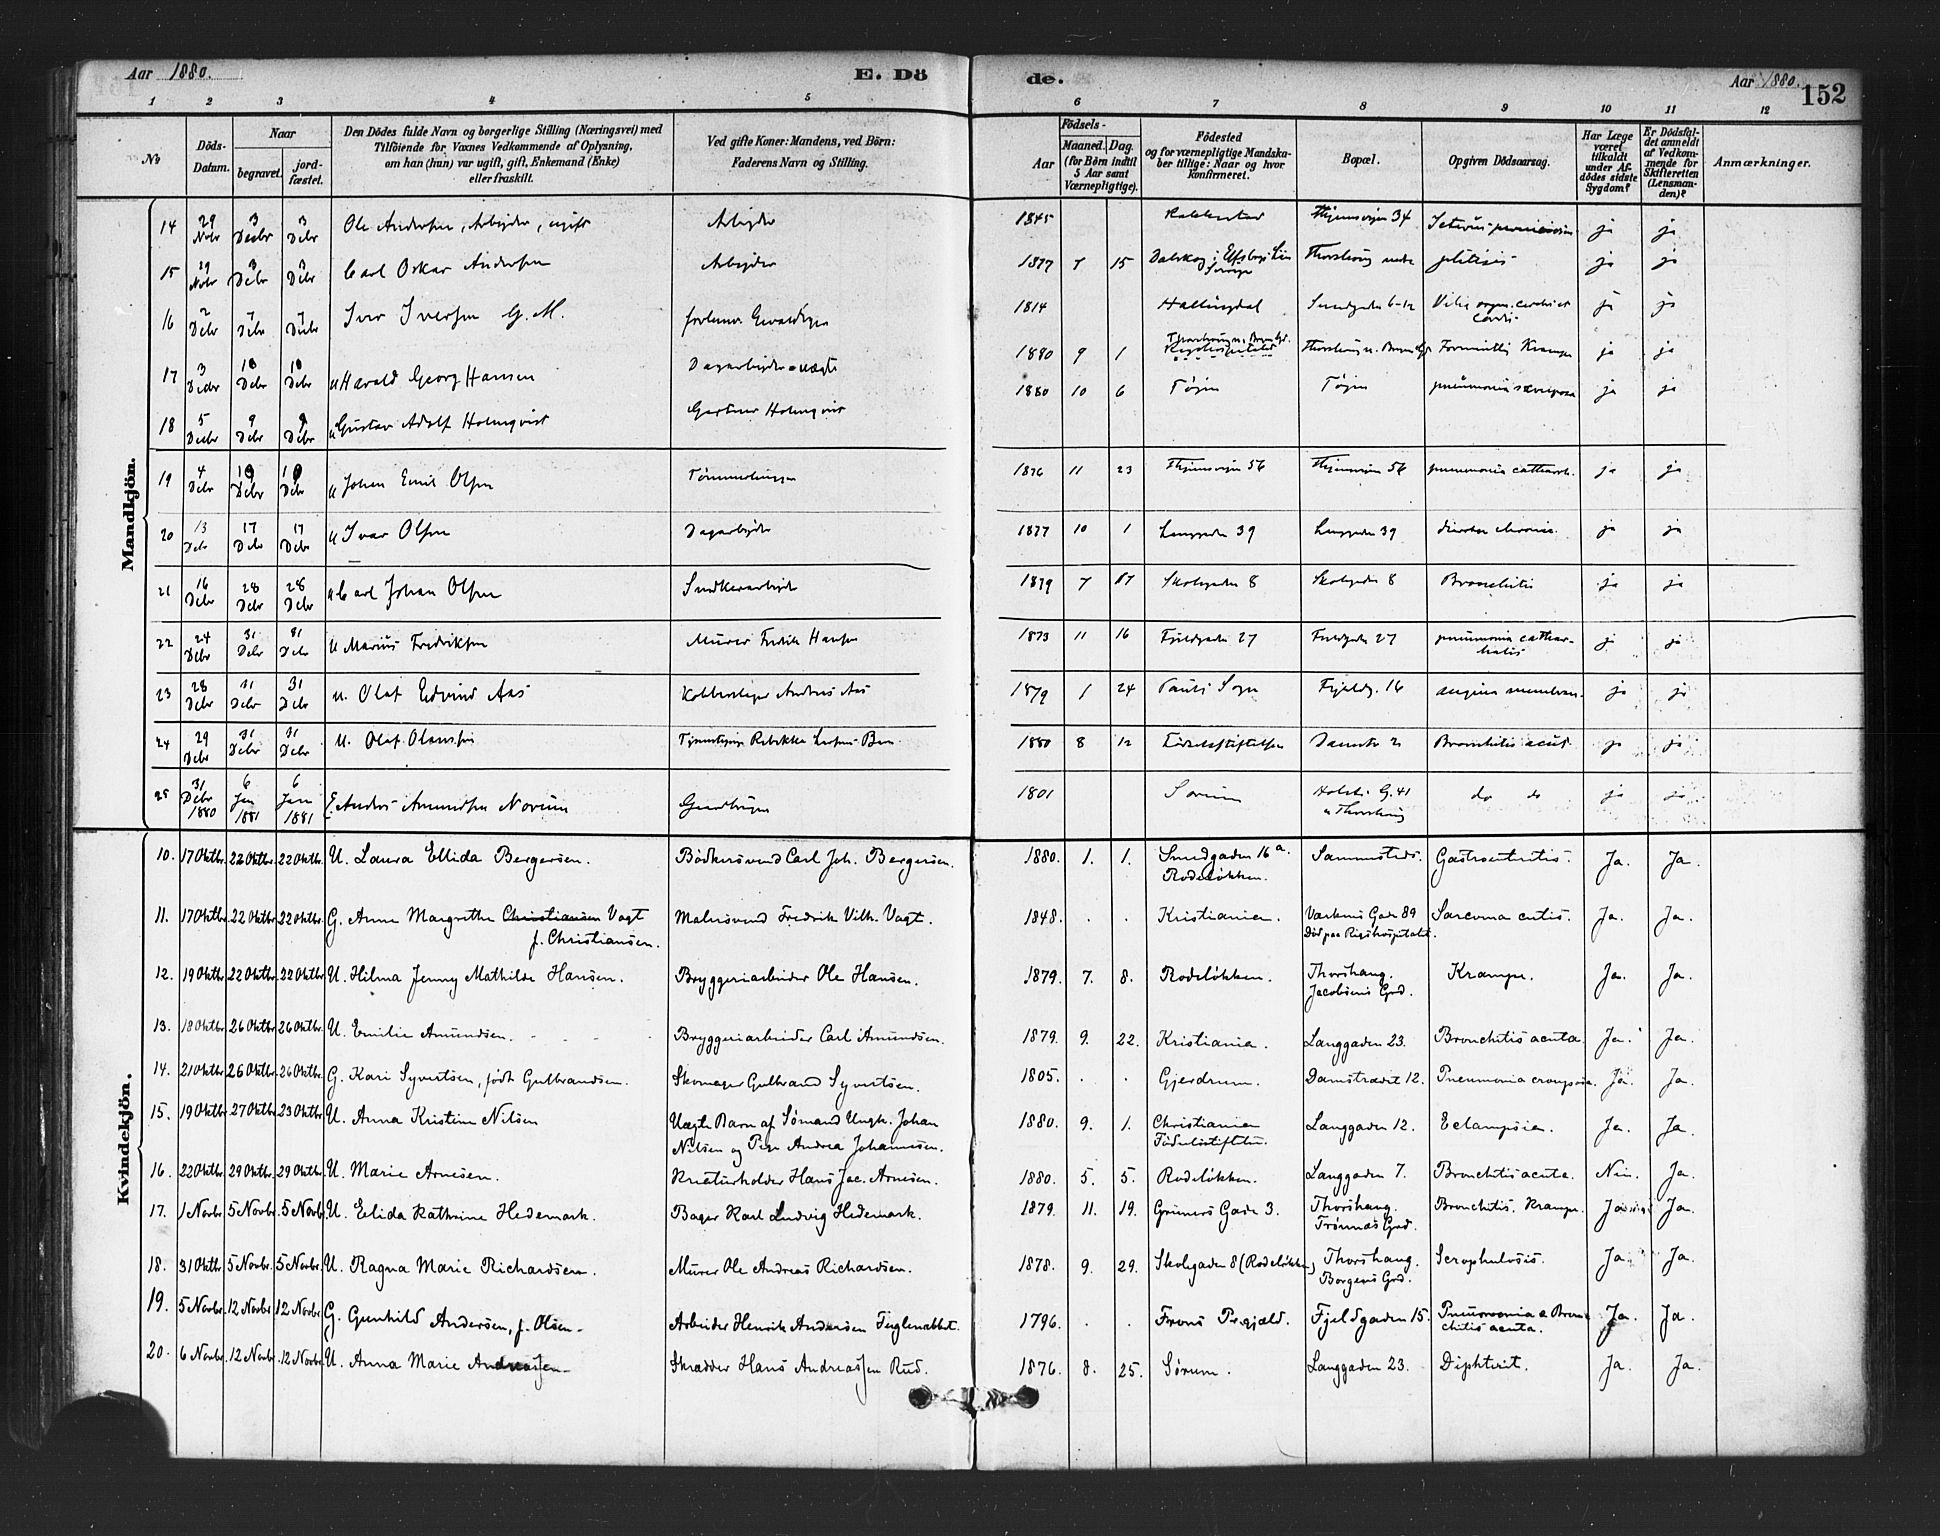 Aar 1880.
E. Dö
de.
Aar 1880.
152
1 2 3 4 5 6 7 8 9 10 11 12
No
Döds-Datum.
Naar
begravet.
jord-fæstet.
Den Dödes fulde Navn og borgerlige Stilling (Næringsvei) med
Tilföiende for Voxnes Vedkommende af Oplysning,
om han (hun) var ugift, gift, Enkemand (Enke)
eller fraskilt.
Ved gifte Koner: Mandens, ved Börn:
Faderens Navn og Stilling.
Födsels-
Aar
Maaned. Dag.
(for Börn indtil
5 Aar samt
Værnepligtige).
Födested
og for værnepligtige Mandska-
ber tillige: Naar og hvor
konfirmeret.
Bopæl.
Opgiven Dödsaarsag.
Har Læge
været
tilkaldt
under Af-
dödes sidste
Sygdom?
Er Dödsfal-
det anmeldt
af Vedkom-
mende for
Skifteretten
(Lensman-
den)?
Anmærkninger.
Mandkjön.
14 29 Nobr 3 Decbr 3 Debr Ole Andersen, Arbejder, ugift Arbejder 1845 34 ja ja
15 29 Nobr 3 Debr 3 Debr Carl Oskar Andersen Arbejder 1877 7 15 ja ja
16 2 Debr 7 Debr 7 Debr Iver Iversen G. M. 1814 Hallingdal ja ja
17 3 Debr 10 Debr 10 Debr u Harald Georg Hansen Dagarbejder uægte 1880 9 1 Krampe ja ja
18 5 Decbr 9 Debr 9 Debr u Gustav Adolf Holmqvist Gartner Holmqvist 1880 10 6 Tøjen Tøjen pneumonia ja ja
19 4 Debr 10 Debr 10 Debr u Johan Emil Olsen 1876 11 23 56 56 pneumonia catharrh. ja ja
20 13 Debr 17 Debr 17 Debr u Ivar Olsen Dagarbejder 1877 10 1 Langgaden 39 Langgaden 39 ja ja
21 16 Debr 28 Debr 28 Debr u Carl Johan Olsen 1879 7 Skolegaden 8 Skolegaden 8 Bronchitis ja ja
22 24 Debr 31 Debr 31 Debr u Marius Fredriksen Murer Fredrik Hansen 1873 11 16 Fjeldgaden 27 Fjeldgaden 27 pneumonia cathar-
halis ja ja
23 28 Debr 31 Debr 31 Debr u. Olaf Edvind Aas Andreas Aas 1879 1 24 Pauls Sogn Fjeldg. 16 angina membran. ja ja
24 29 Debr 31 Debr 31 Debr u. Olaf Olausen 1880 8 12 Fødselsstiftelsen Damstr 2 Bronchitis acut. ja ja
25 31 Debr 1880 6 Jan 1881 6 Jan 1881 E. Anders Amundsen Norum Gaardbruger 1801 Sørum G. 41 do do ja ja
Kvindekjön.
10. 17 Oktbr. 22 Oktbr. 22 Oktbr. U. Laura Ellida Bergersen. Bødkersvend Carl Joh. Bergersen. 1880. 1. 1. Sundgaden 16 a.
Rodeløkken. Sammesteds. Gastroenteritis. Ja. Ja.
11. 17 Oktbr. 22 Oktbr. 22 Oktbr. G. Anne Margrethe Christiansen Vogt
f. Christiansen. Malersvend Fredrik Vilh. Vogt. 1848. . . Kristiania. Gade 89
Död paa Rigshospitalet. Sarcoma cutis. Ja. Ja.
12. 19 Oktbr. 22 Oktbr. 22 Oktbr. U. Hilma Jenny Mathilde Hansen. Bryggeriarbeider Ole Hansen. 1879. 7. 8. Rodeløkken. Thorshaug.
Jacobsens Grd. Krampe. Ja. Ja.
13. 18 Oktbr. 26 Oktbr. 26 Oktbr. U. Emilie Amundsen. Bryggeriarbeider Carl Amundsen. 1879. 9. 22. Kristiania. Langgaden 23. Bronchitis acuta. Ja. Ja.
14. 21 Oktbr. 26 Oktbr. 26 Oktbr. G. Kari Syvertsen, født Gulbrandsen. Skomager Gulbrand Syvertsen. 1805. . . Gjerdrum. Damstrædet 12. Pneumonia crouposa. Ja. Ja.
15. 19 Oktbr. 27 Oktbr. 23 Oktbr. U. Anna Kristine Nilsen Uægte Barn af Sømand Ungk. Johan
Nilsen og Pige Andrea Johannesen. 1880. 9. 1. Christiania
Fødselsstiftelsen. Langgaden 12. Eclampsia. Ja. Ja.
16. 22 Oktbr. 29 Oktbr. 29 Oktbr. U. Marie Arnesen. Kreaturholder Hans Jac. Arnesen. 1880. 5. 5. Rodeløkken. Langgaden 7. Bronchitis acuta. Nei. Ja.
17. 1 Novbr. 5 Novbr. 5 Novbr. U. Elida Kathrine Hedemark. Bager Karl Ludvig Hedemark. 1879. 11. 19. Grüners Gade 3. Thorshaug.
Trønnæs Grd. Bronchitis. Krampe. Ja Ja.
18. 31 Oktbr 5 Novbr. 5 Novbr. U. Ragna Marie Richardsen. Murer Ole Andreas Richardsen. 1878. 9. 29. Skolegaden 8 (Rodeløkken) Thorshaug.
Borgens Grd. Scrophulosis. Ja. Ja.
19. 5 Novbr. 12 Novbr. 12 Novbr. G. Gunhild Andersen, f. Olsen. Arbeider Henrik Andersen Teglenabbet. 1796. . . Frons Prgjæld. Fjeldgaden 15. Pneumonia & Bron-
chitis acuta. Ja. Ja.
20. 6 Novbr. 12 Novbr. 12 Novbr. U. Anna Marie Andreassen Skrædder Hans Andreassen Rud. 1876. 8. 25. Sørum. Langgaden 23. Diphterit. Ja. Ja.